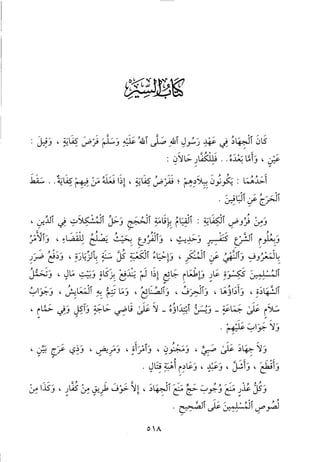 كتاب السير
كَانَ ٱلْجِهَادُ فِي عَهْدِ رَسُولِ ٱللهِ صَلَّى ٱللهُ عَلَيْهِ وَسَلَّمَ فَرْضَ كِفَايَةٍ ، وَقِيلَ :
عَيْنٍ ، وَأَمَّا بَعْدَهُ . . فَلِلْكُفَّارِ حَالاَنِ :
أَحَدُهُمَا : يَكُونُونَ بِبِلاَدِهِمْ ؛ فَفَرْضُ كِفَايَةٍ ، إِذَا فَعَلَهُ مَنْ فِيهِمْ كِفَايَةٌ . . سَقَطَ
ٱلْحَرَجُ عَنِ ٱلْبَاقِينَ .
وَمِنْ فُرُوضِ ٱلْكِفَايَةِ : ٱلْقِيَامُ بِإِقَامَةِ ٱلْحُجَجِ وَحَلِّ ٱلْمُشْكِلاَتِ فِي ٱلدِّينِ ،
وَبِعُلُومِ ٱلشَّرْعِ كَتَفْسِيرٍ وَحَدِيثٍ ، وَٱلْفُرُوعِ بِحَيْثُ يَصْلُحُ لِلْقَضَاءِ ، وَٱلأَمْرُ
بِٱلْمَعْرُوفِ وَٱلنَّهْيُ عَنِ ٱلْمُنْكَرِ ، وَإِحْيَاءُ ٱلْكَعْبَةِ كُلَّ سَنَةٍ بِٱلزِّيَارَةِ ، وَدَفْعُ ضَرَرِ
ٱلْمُسْلِمِينَ كَكِسْوَةِ عَارٍ وَإِطْعَامِ جَائِعٍ إِذَا لَمْ يَنْدَفِعْ بِزَكَاةٍ وَبَيْتِ مَالٍ ، وَتَحَمُّلُ
ٱلشَّهَادَةِ ، وَأَدَاؤُهَا ، وَٱلْحِرَفُ ، وَٱلصَّنَائِعُ ، وَمَا تَتِمُّ بِهِ ٱلْمَعَايِشُ ، وَجَوَابُ
سَلاَمٍ عَلَىٰ جَمَاعَةٍ - وَيُسَنُّ ٱبْتِدَاؤُهُ - لاَ عَلَىٰ قَاضِي حَاجَةٍ وَآكِلٍ وَفِي حَمَّامٍ ،
وَلاَ جَوَابَ عَلَيْهِمْ .
وَلاَ جِهَادَ عَلَىٰ صَبِيٍّ ، وَمَجْنُونٍ ، وَٱمْرَأَةٍ ، وَمَرِيضٍ ، وَذِي عَرَجٍ بَيِّنٍ ،
وَأَقْطَعَ ، وَأَشَلَّ ، وَعَبْدٍ ، وَعَادِمِ أُهْبَةِ قِتَالٍ .
وَكُلُّ عُذْرٍ مَنَعَ وُجُوبَ حَجٍّ مَنَعَ ٱلْجِهَادَ ، إِلاَّ خَوْفَ طَرِيقٍ مِنْ كُفَّارٍ ، وَكَذَا مِنْ
لُصُوصِ ٱلْمُسْلِمِينَ عَلَى ٱلصَّحِيحِ .
٥١٨